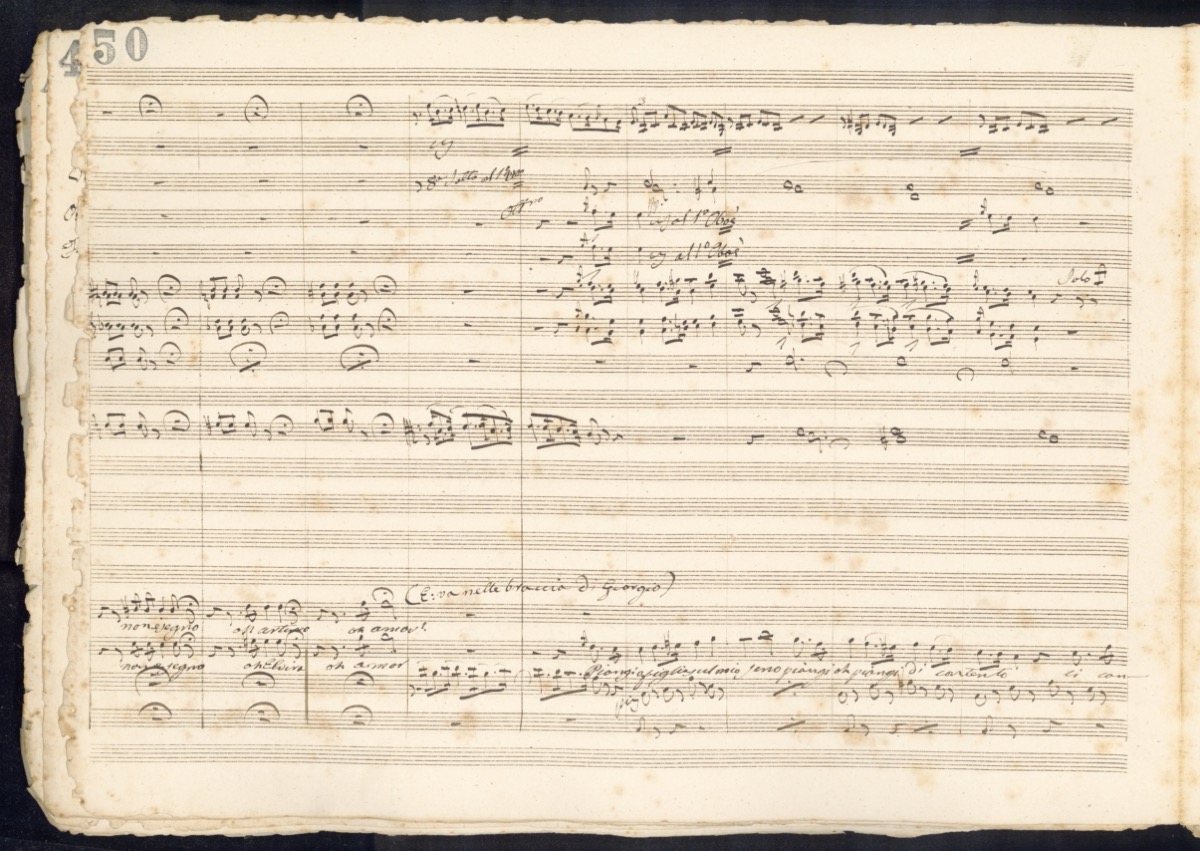 450
8a sotto al 1mo
al 1º Oboè
al 1º Oboè
Solo
(E: va nelle braccia di Giorgio)
non è segno oh arturo oh amor!
non è segno oh elvira oh amor
Piangi o figlia sul mio seno piangi oh piangi di contento ti con